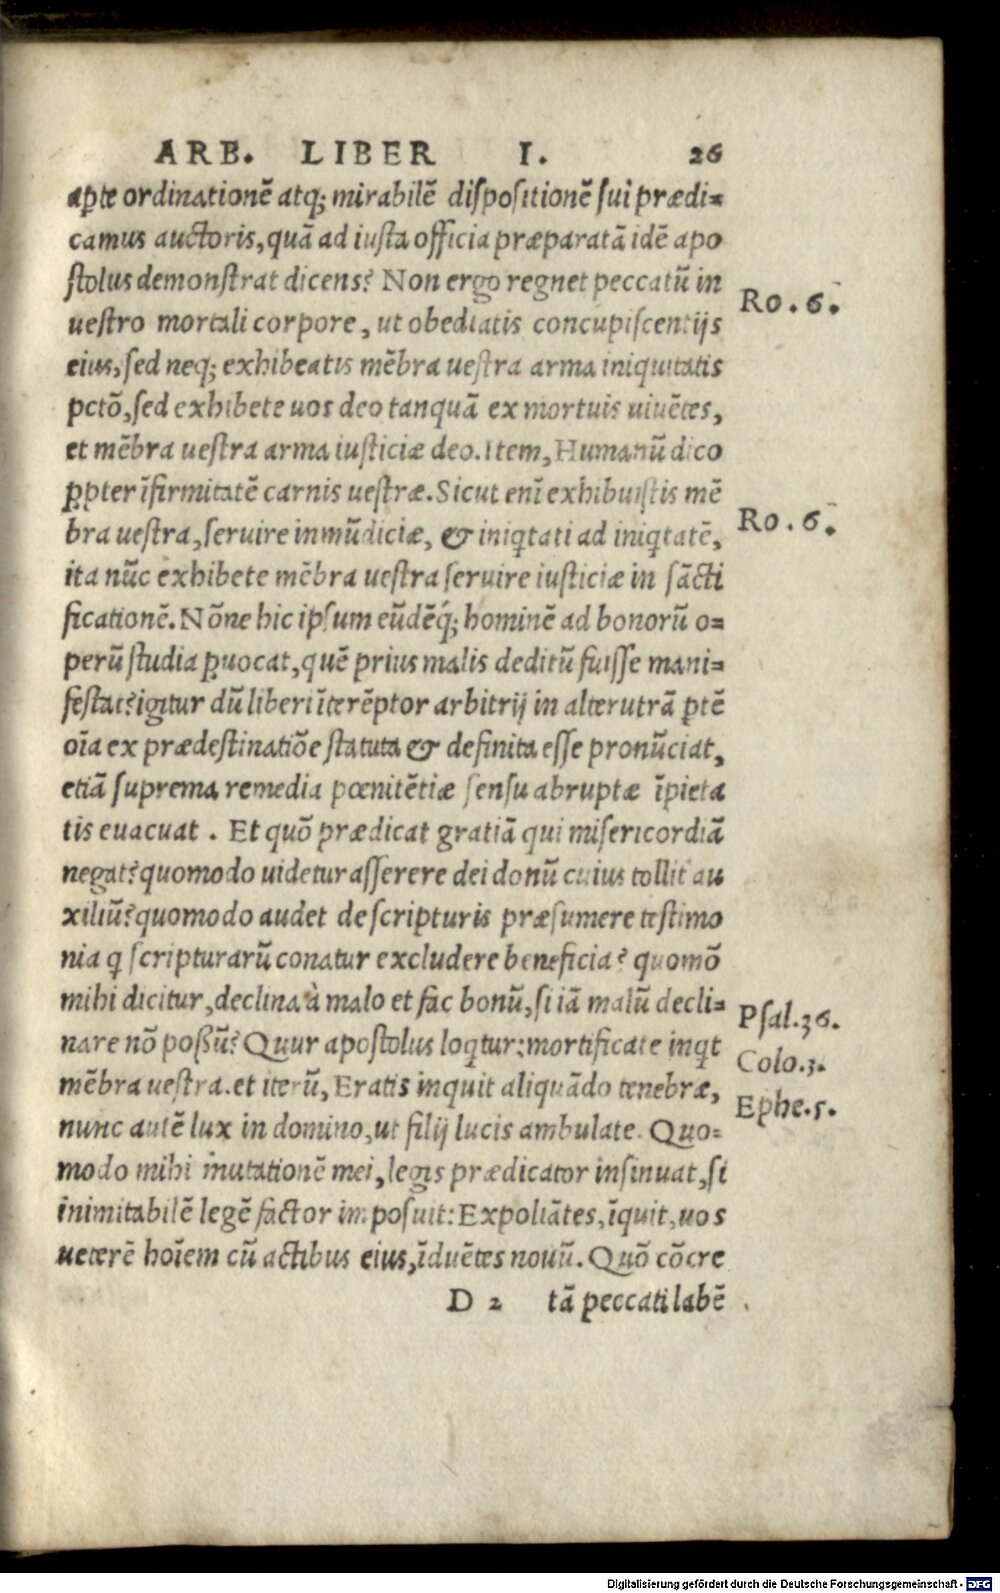 ARB. LIBER I. 26
aꝑte ordinationē atq; mirabilē dispositionē sui prædi=
camus auctoris, quā ad iusta officia præparatā idē apo
stolus demonstrat dicens? Non ergo regnet peccatū in
Ro. 6.
uestro mortali corpore, ut obediatis concupiscentijs
eius, sed neq; exhibeatis mēbra uestra arma iniquitatis
pctō, sed exhibete uos deo tanquā ex mortuis uiuētes,
et mēbra uestra arma iusticiæ deo. Item, Humanū dico
ꝓpter īfirmitatē carnis uestræ. Sicut enī exhibuistis mē
Ro. 6.
bra uestra, seruire inmūdiciæ, & iniꝗtati ad iniꝗtatē,
ita nūc exhibete mēbra uestra seruire iusticiæ in sācti
ficationē. Nōne hic ipsum eūdēq́; hominē ad bonorū o=
perū studia ꝓuocat, quē prius malis deditū fuisse mani=
festat? igitur dū liberi īterēptor arbitrij in alterutrā ꝑtē
oīa ex prædestinatiōe statuta & definita esse pronūciat,
etiā suprema remedia pœnitētiæ sensu abruptæ īpieta
tis euacuat. Et quō prædicat gratiā qui misericordiā
negat? quomodo uidetur asserere dei donū cuius tollit au
xiliū? quomodo audet de scripturis præsumere testimo
nia ꝗ scripturarū conatur excludere beneficia? quomō
mihi dicitur, declina à malo et fac bonū, si iā malū decli=
Psal. 36.
nare nō poßū? Quur apostolus loꝗtur: mortificate inꝗt
Colo. 3.
mēbra uestra. et iterū, Eratis inquit aliquādo tenebræ,
Ephe. 5.
nunc autē lux in domino, ut filij lucis ambulate. Quo=
modo mihi mutationē mei, legis prædicator insinuat, si
inimitabilē legē factor imposuit: Expoliātes, īquit, uos
ueterē hoīem cū actibus eius, īduētes nouū. Quō cōcre
D 2 tā peccati labē
Digitalisierung gefördert durch die Deutsche Forschungsgemeinschaft - DFG